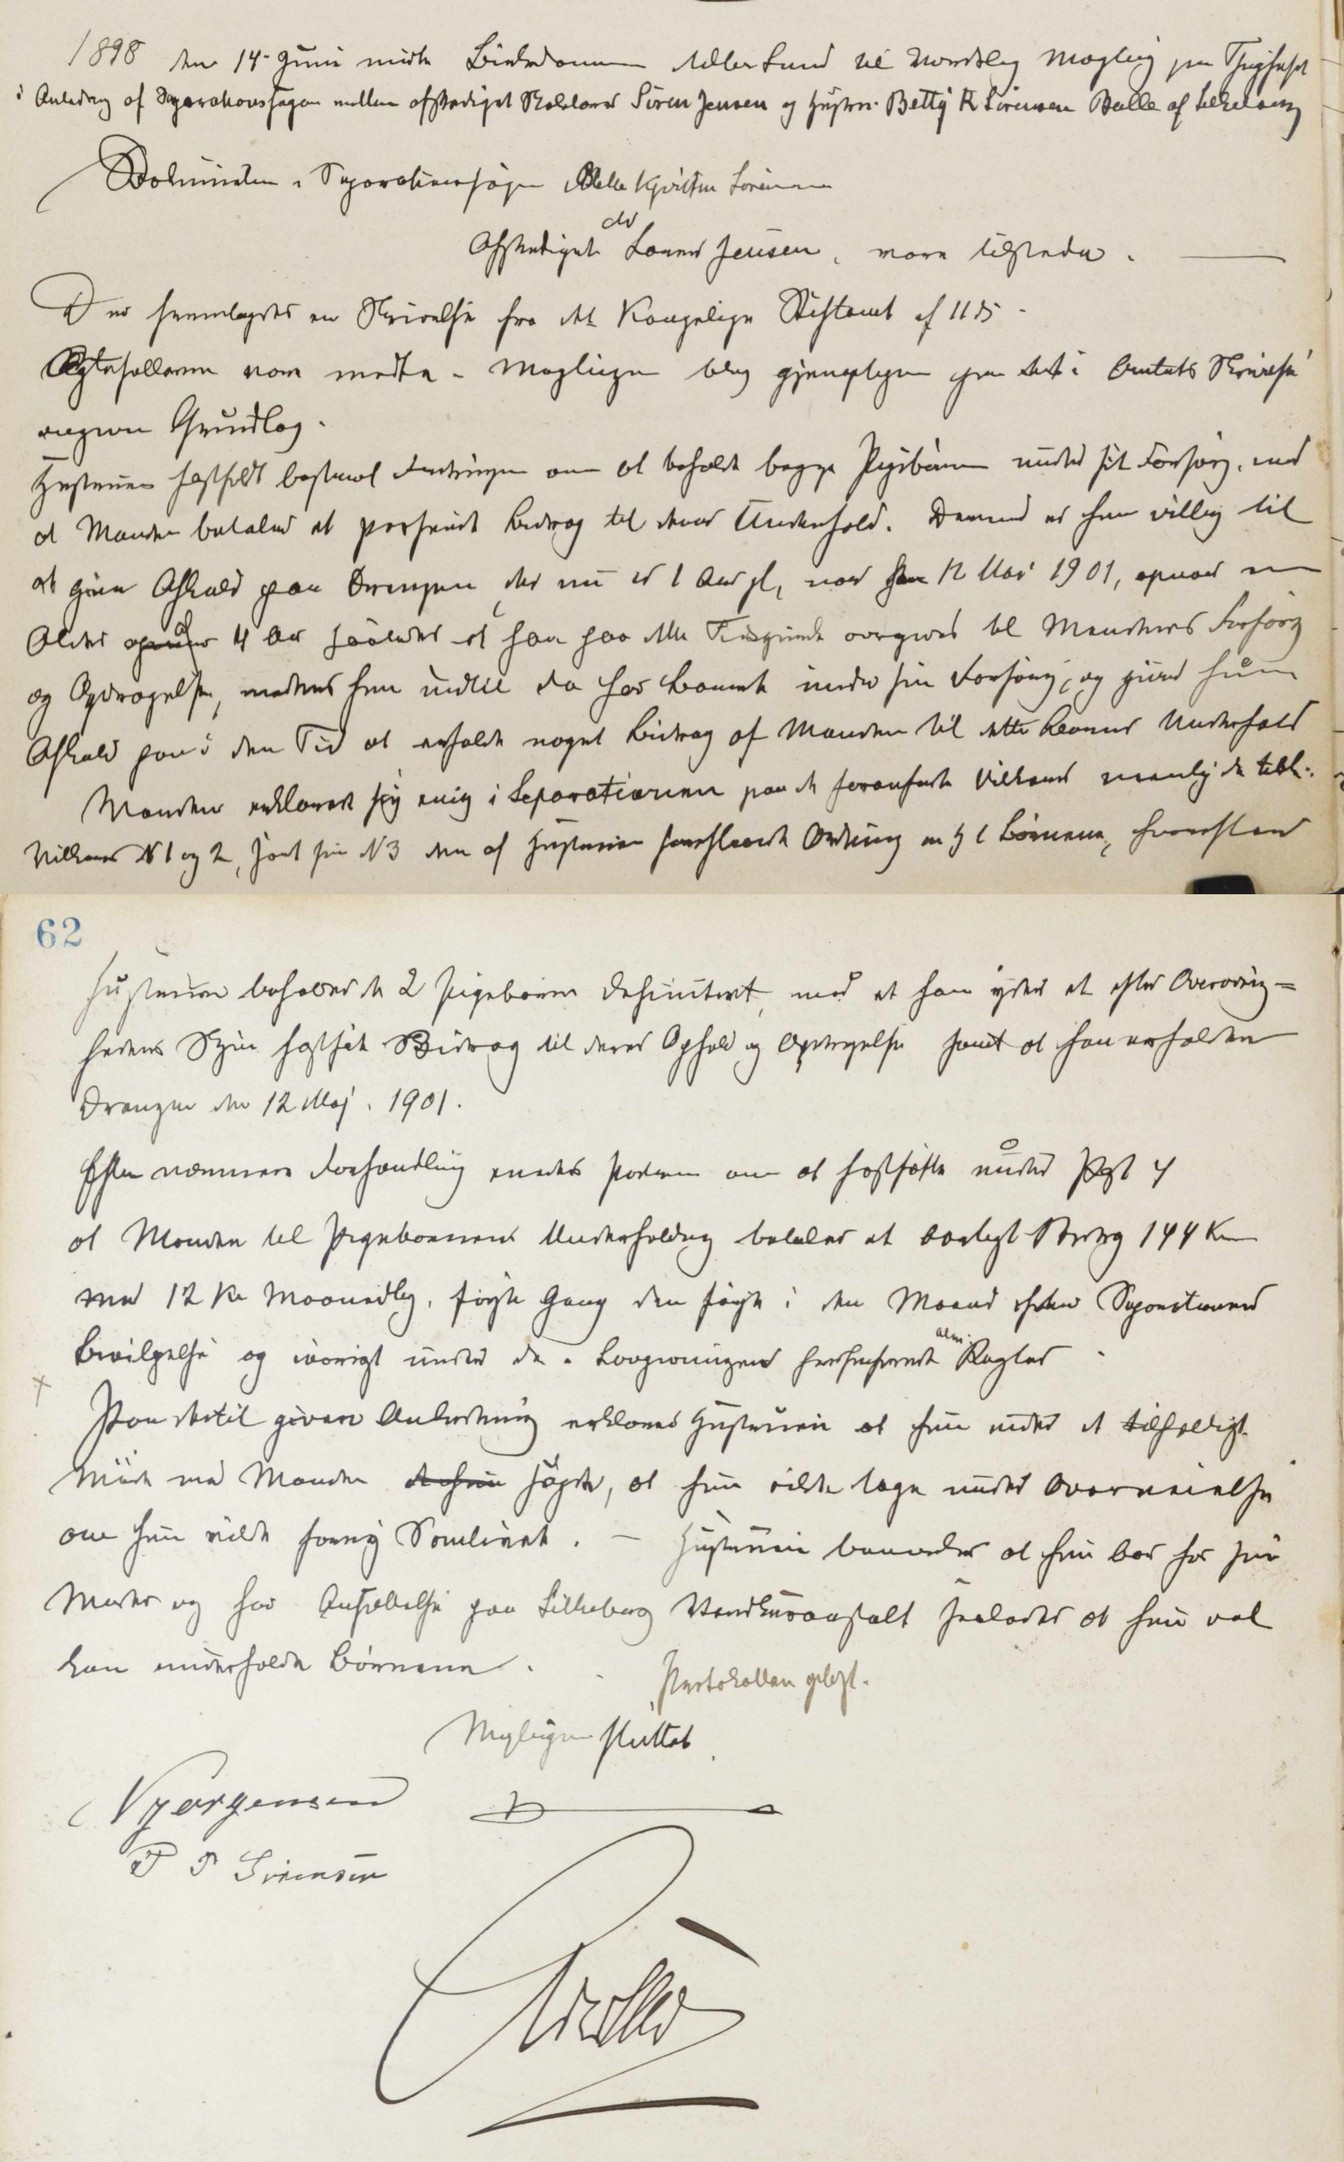 1898 den 14 Juni mødte til verdslig Mægling paa Thinghuset
i Anledng af Separationssagen mellem afskediget Skolelærer Sören Jensen og Hustru Betty K Sörensen Balle af Silkeborg
i Separationssagen Sörensen
Afskediget Lærer Jensen, vare tilstede.
Der fremlagdes en Skrivelse fra det Kongelige Stiftamt af 11 ds
Ægtefællerne vare mødte. Mæglingen blev paa det i Amtets Skrivelse
angivne Grundlag.
Hustruen fastholdt bestemt Fordringen om at beholde begge Pigebörn under sit Forsörg, ved
at Manden betaler et passende Bidrag til deres Underhold. Derimod er hun villig til
at give Afkald paa Drengen, der nu er 1 Aar gl, naar han 12 Maj 1901, opnaar en
Alder 4 Aar saaledes at han paa dette Tidspunkt overgives til Mandens Forsörg
og Opdragelse, medens hun indtil da har Barnet under sin Forsörg, og giver hun
Afkald paa i den Tid at erholde noget Bidrag af Manden til dette Barns Underhold
Manden erklærede sig enig i Separationen paa de foranførte Vilkaar nemlig de
Vilkaar N 1 og 2, samt som N 3 den af Hustruen foreslaaede Ordning m H t Börnene, hvorefter
62
Hustruen beholder de 2 Pigebörn definitivt, mod at han yder et efter Overövrig=
hedens Skjön fastsat Bidrag til deres Ophold og Opdragelse samt at han erholder
Drengen den 12 Maj. 1901.
Efter nærmere Forhandling enedes Parterne om at fastsætte under Pkt 4
at Manden til Pigebørnenes Underholdng betaler et aarligt Bidrag 144 Kr
med 12 Kr Maanedlig, første Gang den første i den Maaned efter Separationens
Bevilgelse og iøvrigt under de i Lovgivningen alm. Regler
Paa dertil given Anledning erklærede Hustruen at hun under et tilfældigt
Møde med Manden sagde, at hun vilde tage under Overveielse
om hun vilde forny Samlivet. – Hustruen bemærker at hun bor hos sin
Moder og har Ansættelse paa Silkeborg Vandkuranstalt saaledes at hun vel
kan underholde Börnene.
Protokollen oplæst.
Mæglingen sluttet.
Vjörgensen
P P Sörensen